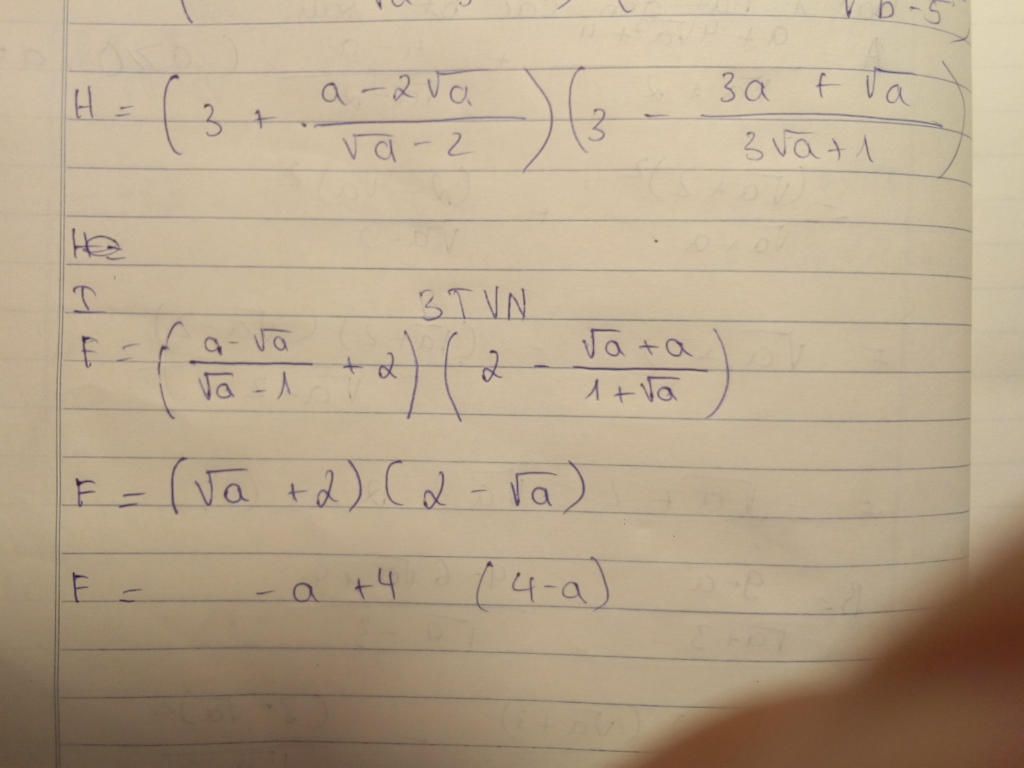 √b - 5
H = (3 + (a - 2√a)/(√a - 2)) (3 - (3a + √a)/(3√a + 1))
I 3TVN
F = ((a - √a)/(√a - 1) + 2) (2 - (√a + a)/(1 + √a))
F = (√a + 2) (2 - √a)
F = - a + 4 (4 - a)